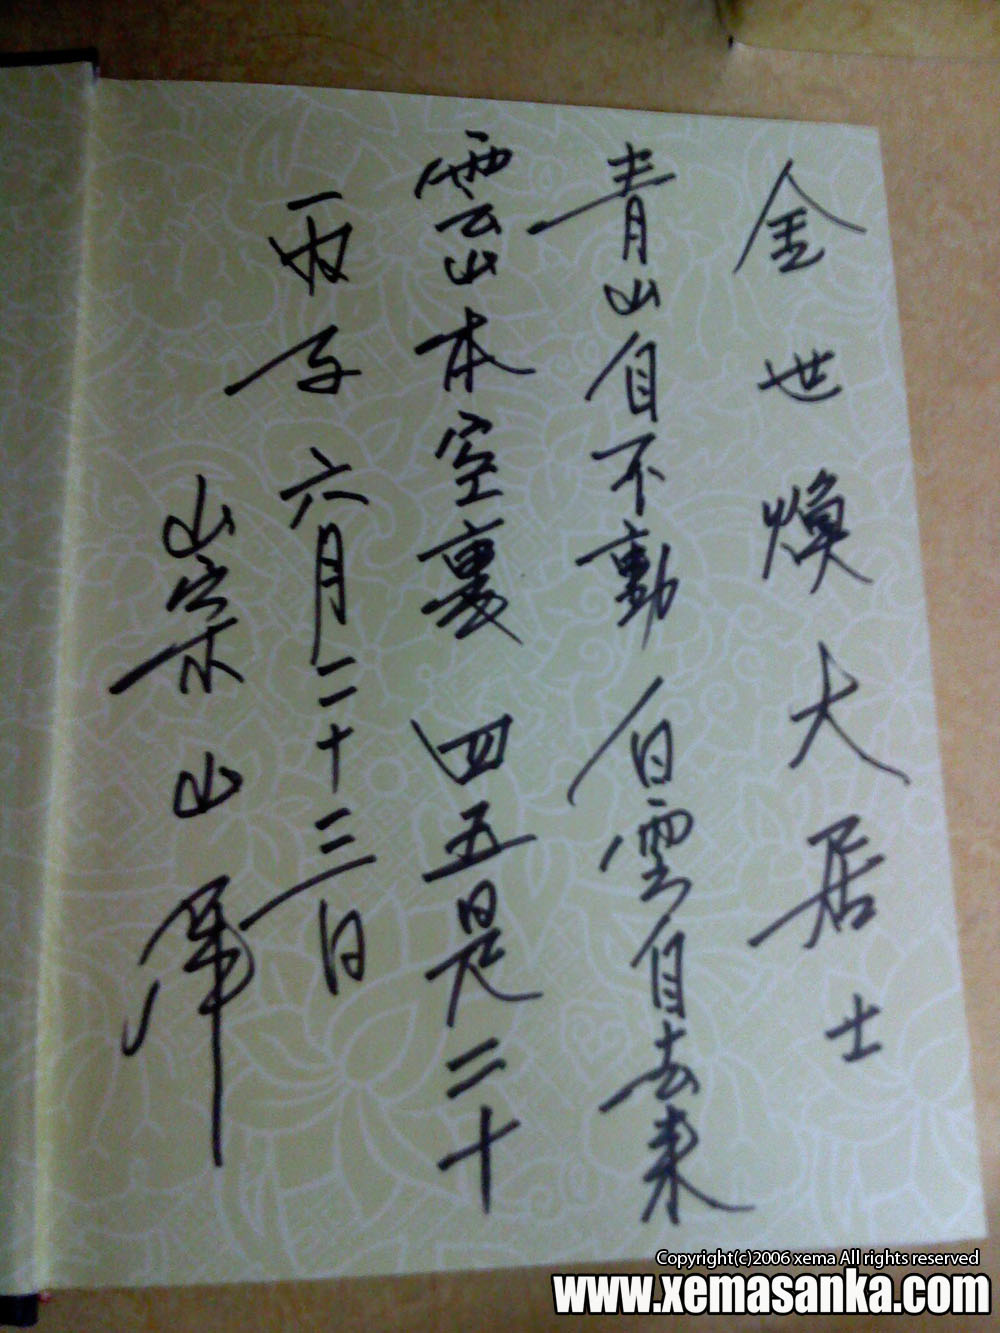 金世煥大居士
青山自不動 白雲自去來
雲山本空裏 四五是二十
丙子 六月二十三日
崇山
Copyright(c)2006 xema All rights reserved
www.xemasanka.com